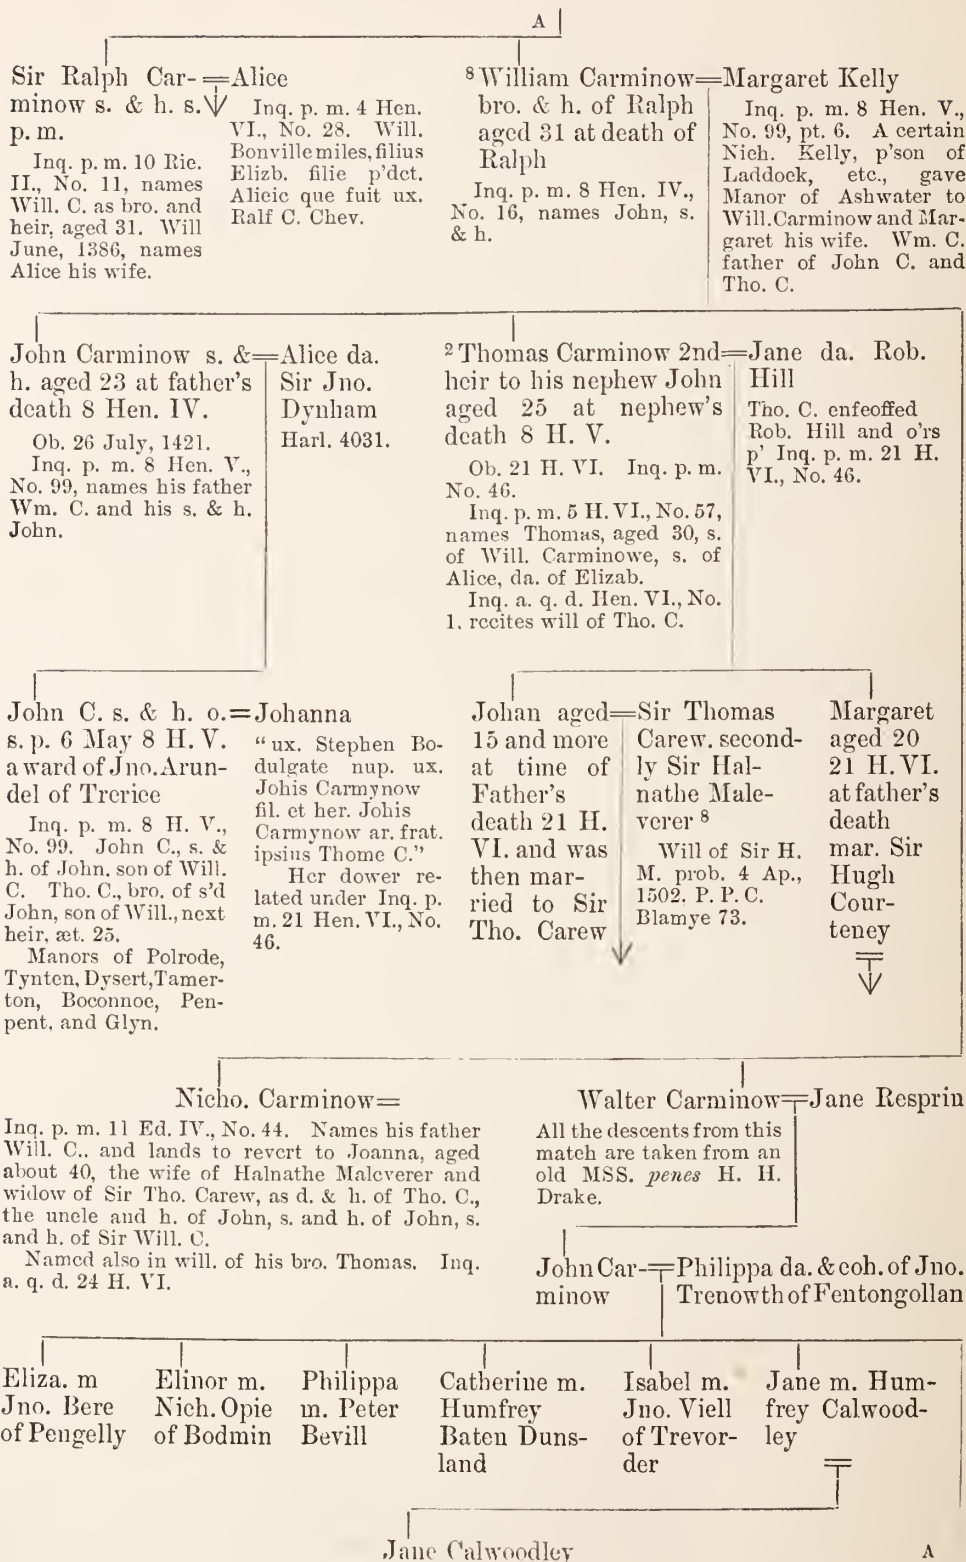 A
Sir Ralph Car- = Alice
minow s. & h. s.
p. m.
Inq. p. m. 10 Ric.
II., No. 11, names
Will. C. as bro. and
heir, aged 31. Will
June, 1386, names
Alice his wife.
Inq. p. m. 4 Hen.
VI., No. 28. Will.
Bonville miles, filius
Elizb. filie p'dct.
Alicie que fuit ux.
Ralf C. Chev.
8 William Carminow = Margaret Kelly
bro. & h. of Ralph
aged 31 at death of
Ralph
Inq. p. m. 8 Hen. IV.,
No. 16, names John, s.
& h.
Inq. p. m. 8 Hen. V.,
No. 99, pt. 6. A certain
Nich. Kelly, p'son of
Laddock, etc., gave
Manor of Ashwater to
Will. Carminow and Mar-
garet his wife. Wm. C.
father of John C. and
Tho. C.
John Carminow s. & = Alice da.
h. aged 23 at father's
death 8 Hen. IV.
Ob. 26 July, 1421.
Inq. p. m. 8 Hen. V.,
No. 99, names his father
Wm. C. and his s. & h.
John.
Sir Jno.
Dynham
Harl. 4031.
2 Thomas Carminow 2nd = Jane da. Rob.
heir to his nephew John
aged 25 at nephew's
death 8 H. V.
Ob. 21 H. VI. Inq. p. m.
No. 46.
Inq. p. m. 5 H. VI., No. 57,
names Thomas, aged 30, s.
of Will. Carminowe, s. of
Alice, da. of Elizab.
Inq. a. q. d. Hen. VI., No.
1. recites will of Tho. C.
Hill
Tho. C. enfeoffed
Rob. Hill and o'rs
p' Inq. p. m. 21 H.
VI., No. 46.
John C. s. & h. o. = Johanna
s. p. 6 May 8 H. V.
a ward of Jno. Arun-
del of Trerice
Inq. p. m. 8 H. V.,
No. 99. John C., s. &
h. of John. son of Will.
C. Tho. C., bro. of s'd
John, son of Will., next
heir, æt. 25.
Manors of Polrode,
Tynten, Dysert, Tamer-
ton, Boconnoc, Pen-
pent, and Glyn.
"ux. Stephen Bo-
dulgate nup. ux.
Johis Carmynow
fil. et her. Johis
Carmynow ar. frat.
ipsius Thome C."
Her dower re-
lated under Inq. p.
m. 21 Hen. VI., No.
46.
Johan aged = Sir Thomas
15 and more
at time of
Father's
death 21 H.
VI. and was
then mar-
ried to Sir
Tho. Carew
Carew. second-
ly Sir Hal-
nathe Male-
verer 8
Will of Sir H.
M. prob. 4 Ap.,
1502. P. P. C.
Blamye 73.
Margaret
aged 20
21 H. VI.
at father's
death
mar. Sir
Hugh
Cour-
teney
Nicho. Carminow =
Inq. p. m. 11 Ed. IV., No. 44. Names his father
Will. C.. and lands to revert to Joanna, aged
about 40, the wife of Halnathe Maleverer and
widow of Sir Tho. Carew, as d. & h. of Tho. C.,
the uncle and h. of John, s. and h. of John, s.
and h. of Sir Will. C.
Named also in will. of his bro. Thomas. Inq.
a. q. d. 24 H. VI.
Walter Carminow = Jane Resprin
All the descents from this
match are taken from an
old MSS. penes H. H.
Drake.
John Car- = Philippa da. & coh. of Jno.
minow Trenowth of Fentongollan
Eliza. m
Jno. Bere
of Pengelly
Elinor m.
Nich. Opie
of Bodmin
Philippa
m. Peter
Bevill
Catherine m.
Humfrey
Baten Duns-
land
Isabel m.
Jno. Viell
of Trevor-
der
Jane m. Hum-
frey Calwood-
ley
Jane Calwoodley
A